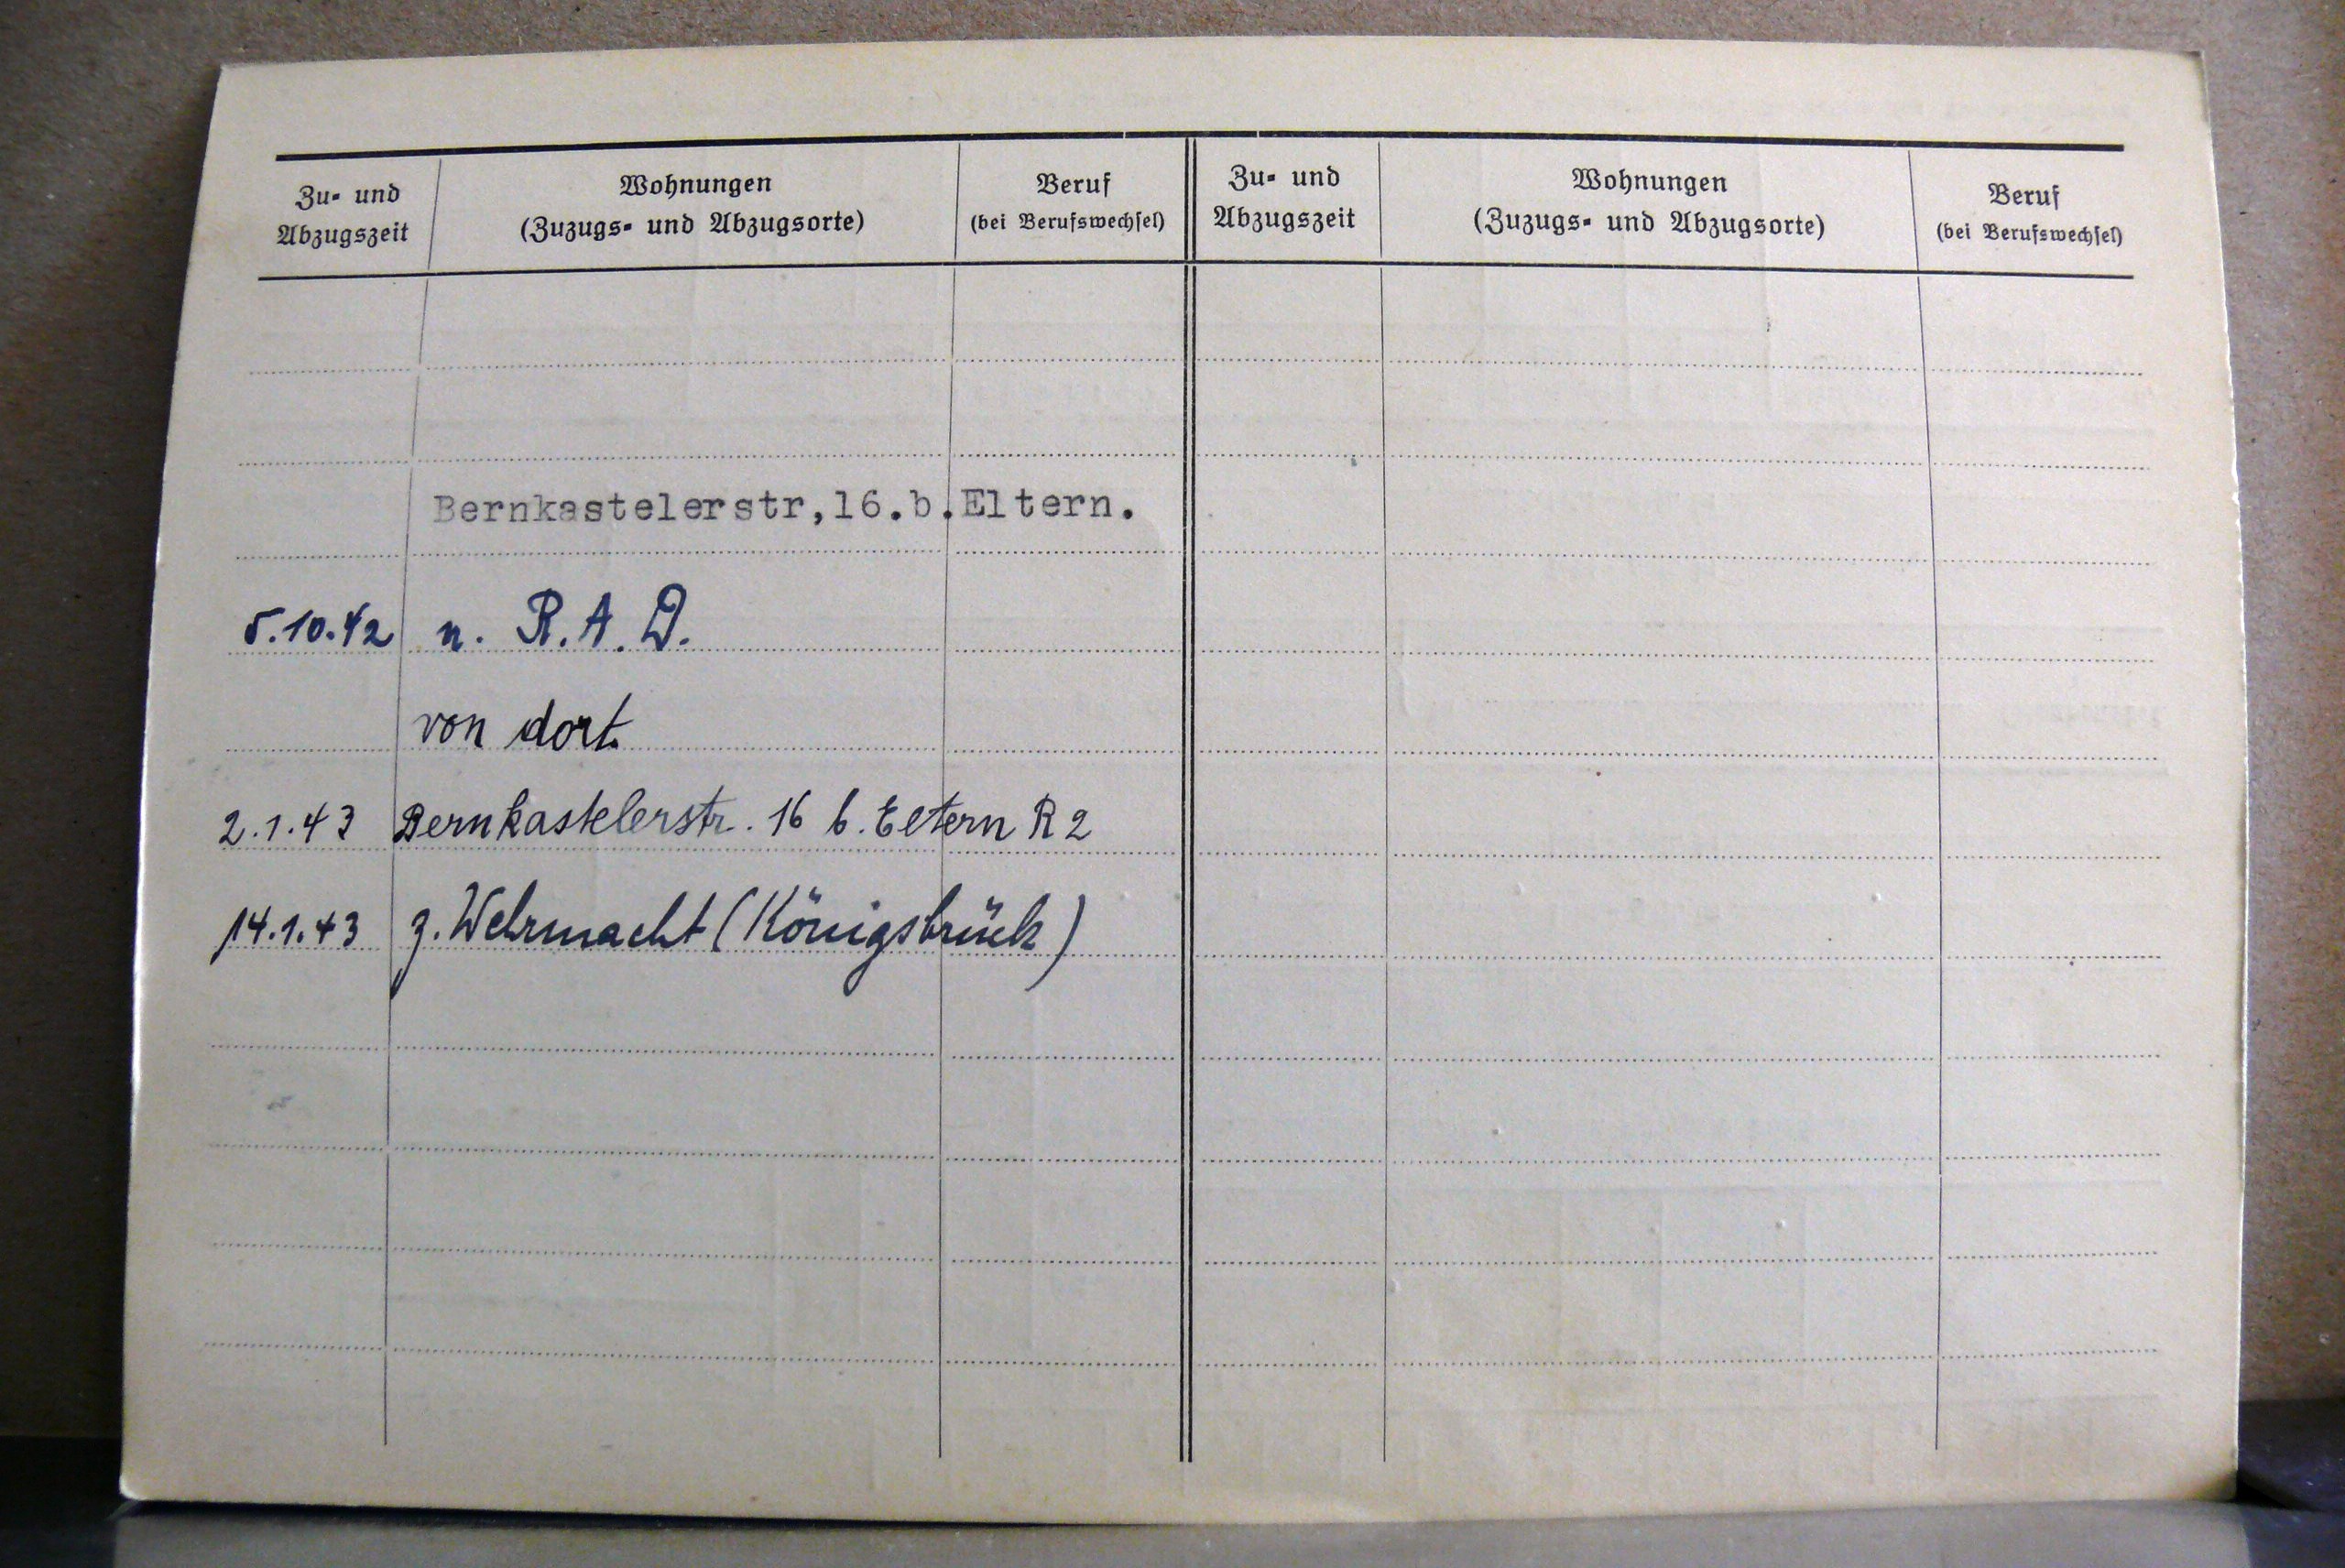 Zu- und
Abzugszeit
Wohnungen
(Zuzugs- und Abzugsorte)
Beruf
(bei Berufswechsel)
Zu- und
Abzugszeit
Wohnungen
(Zuzugs- und Abzugsorte)
Beruf
(bei Berufswechsel)
Bernkastelerstr,16.b.Eltern.
5.10.42 n. R.A.D.
von dort.
2.1.43 Bernkastelerstr. 16 b. Eltern R 2
14.1.43 z. Wehrmacht (Königsbrück)